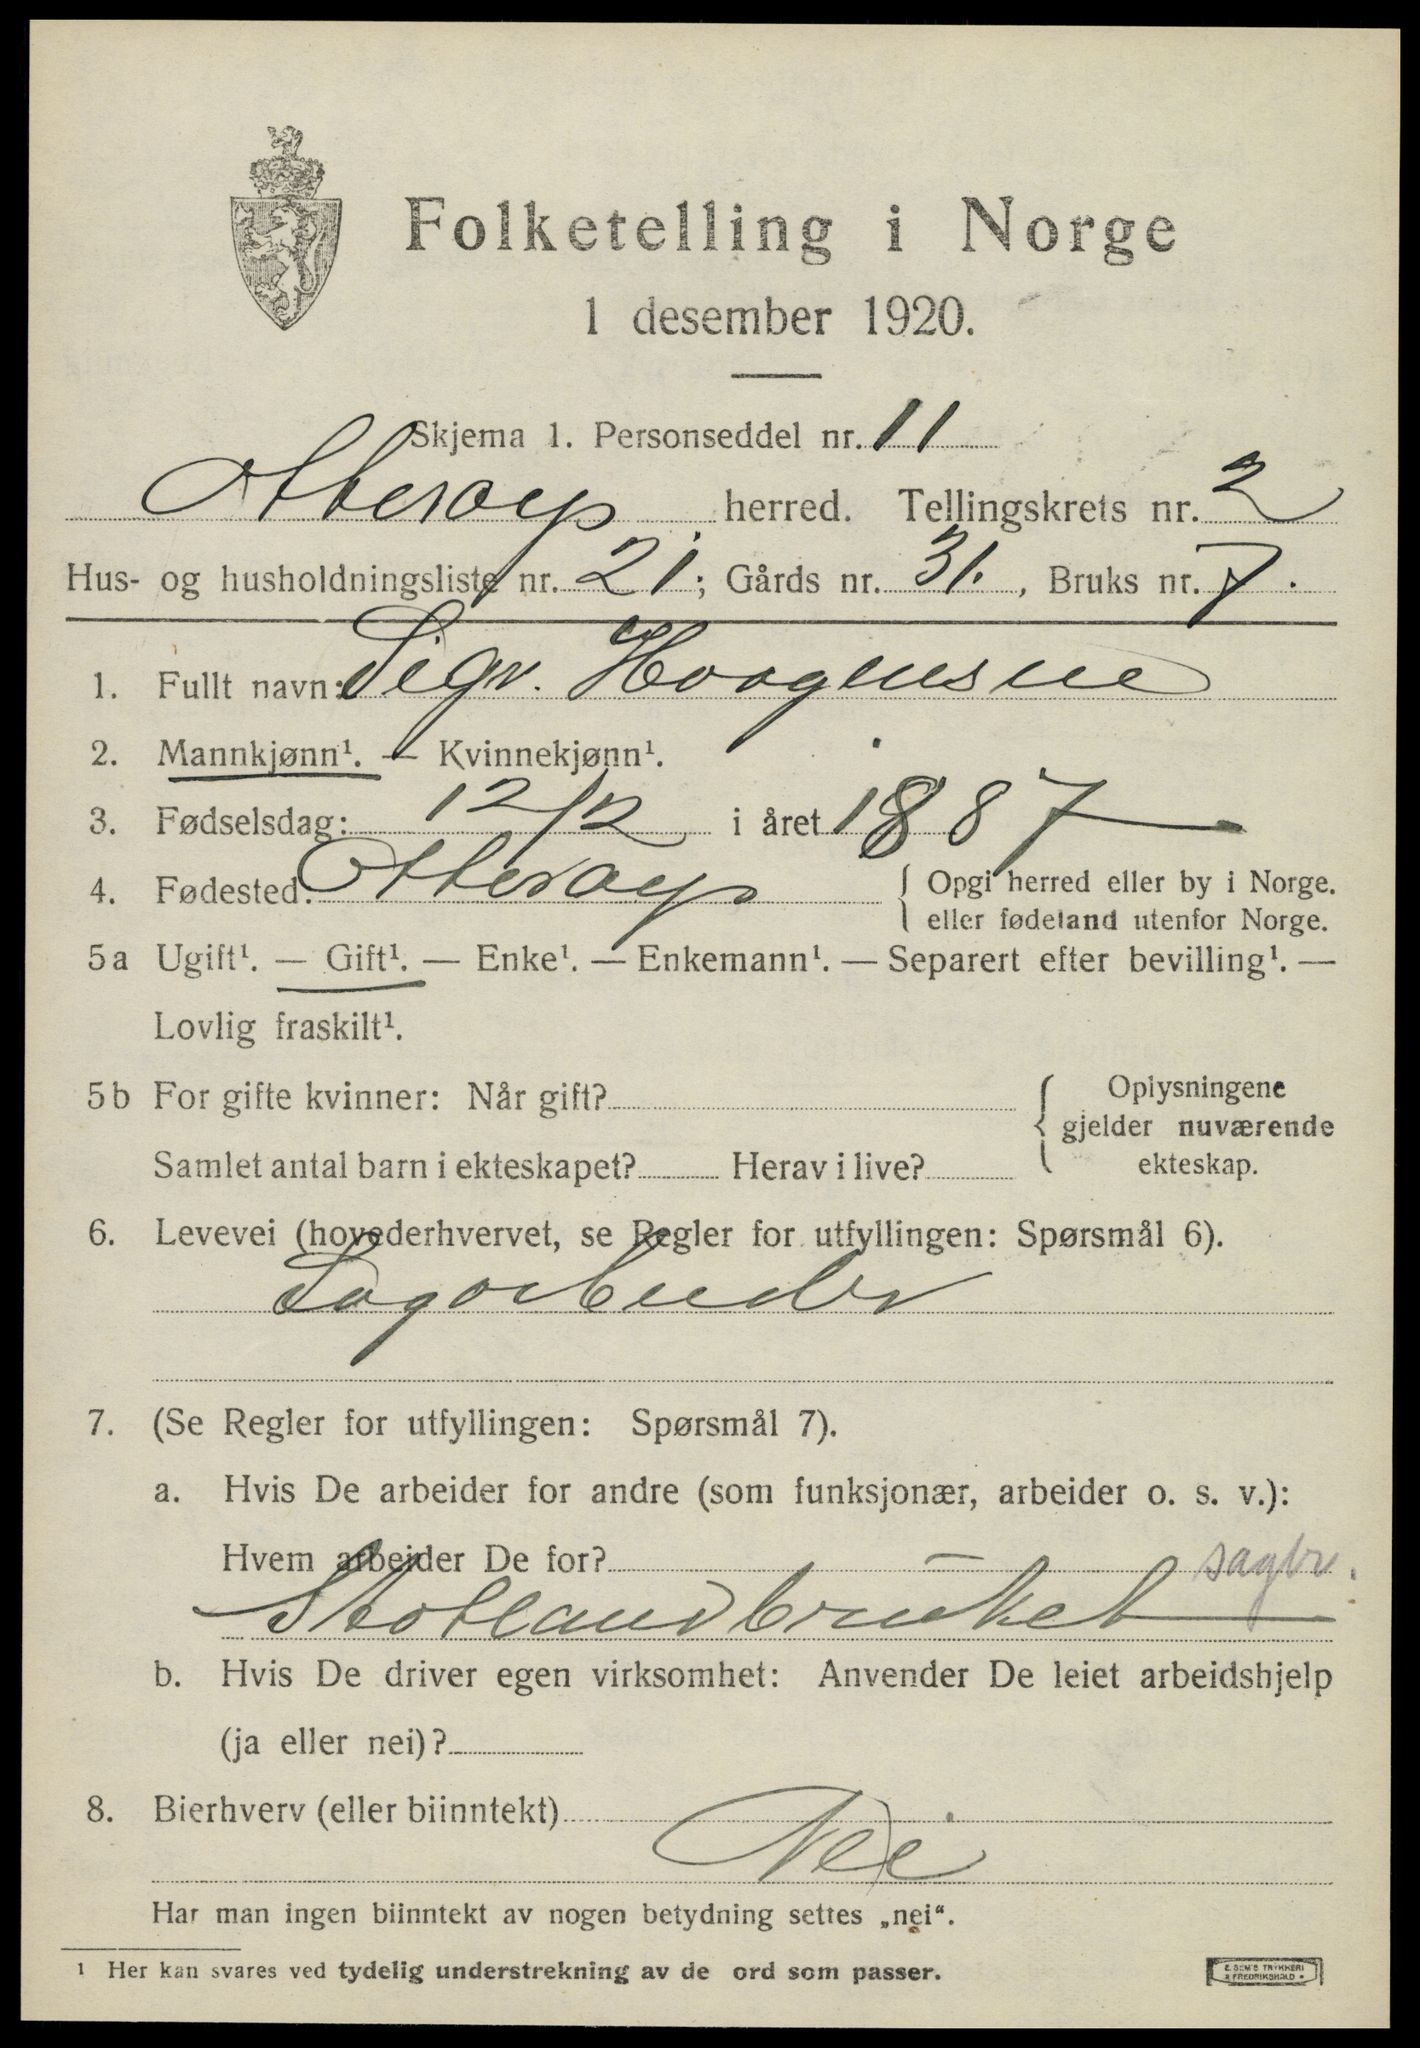 Folketelling i Norge
1 desember 1920.
Skjema 1. Personseddel nr. 11
Otterøy herred. Tellingskrets nr. 2
Hus- og husholdningsliste nr. 21; Gårds nr. 31., Bruks nr. 7.
1. Fullt navn: Sigv. Haagensen
2. Mannkjønn¹. — Kvinnekjønn¹.
3. Fødselsdag: 12/12 i året 1887
4. Fødested. Otterøy { Opgi herred eller by i Norge.
eller fødeland utenfor Norge.
5a Ugift¹. — Gift¹. — Enke¹. — Enkemann¹. — Separert efter bevilling¹. —
Lovlig fraskilt¹.
5b For gifte kvinner: Når gift? { Oplysningene
gjelder nuværende
Samlet antal barn i ekteskapet? Herav i live? ekteskap.
6. Levevei (hovederhvervet, se Regler for utfyllingen: Spørsmål 6).
Sagarbeider
7. (Se Regler for utfyllingen: Spørsmål 7).
a. Hvis De arbeider for andre (som funksjonær, arbeider o. s. v.):
Hvem arbeider De for? sagbr.
Skotlandbruket
b. Hvis De driver egen virksomhet: Anvender De leiet arbeidshjelp
(ja eller nei)?
8. Bierhverv (eller biinntekt)
Nei
Har man ingen biinntekt av nogen betydning settes „nei“.
¹ Her kan svares ved tydelig understrekning av de ord som passer.
E. SEM'S TRYKKERI
FREDRIKSHALD